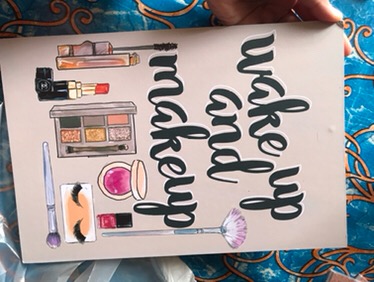 wake up
and
makeup